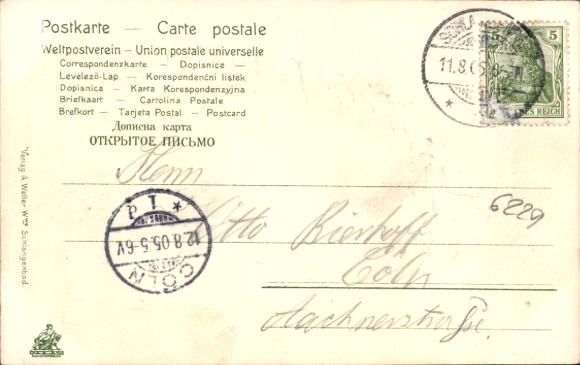 Postkarte — Carte postale
Weltpostverein – Union postale universelle
Correspondenzkarte — Dopisnice —
Levelező-Lap — Korespondenční lístek
Dopisnica — Karta Korespondenzyjna
Briefkaart — Cartolina Postale
Brefkort — Tarjeta Postal — Postcard
Дописна карта
ОТКРЫТОЕ ПИСЬМО
11.8.05
5 5
REICH
Herrn
Otto Bierhoff
Cöln
Aachnerstrasse.
6229
* 1d
12.8.05.5-6V.
CÖLN
Verlag A. Welter Wwe. Schlangenbad.